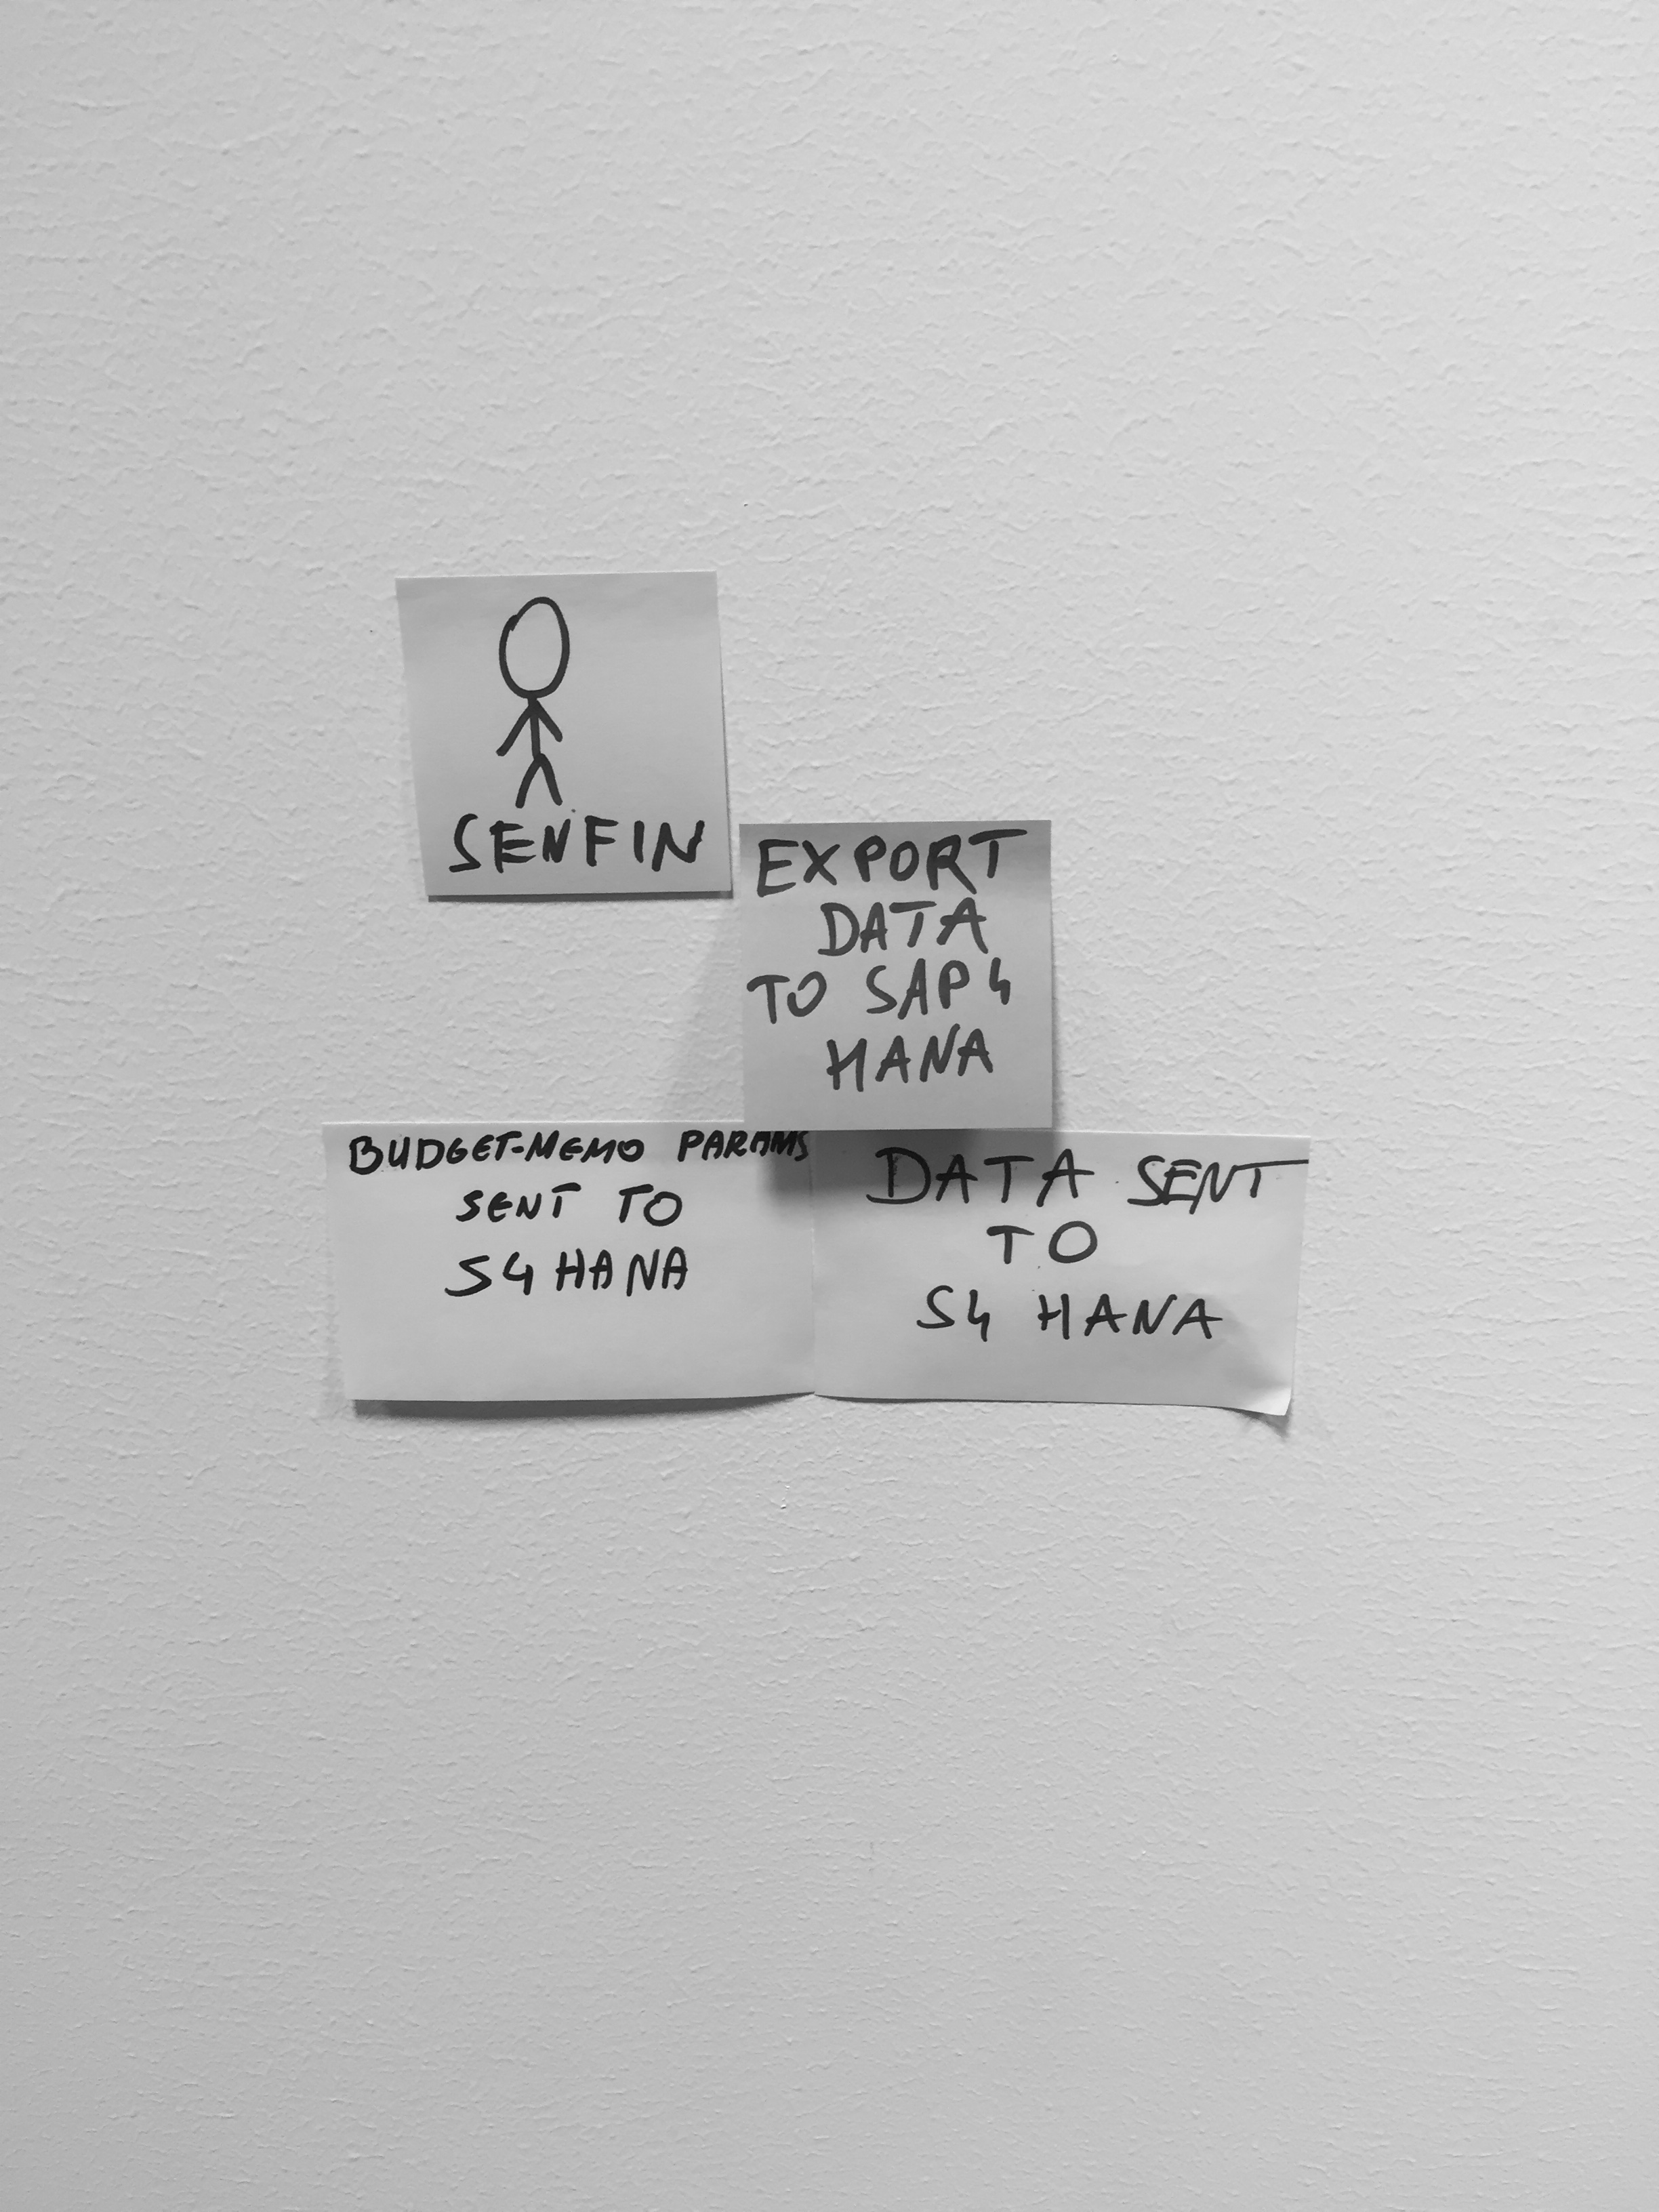 SENFIN
EXPORT
DATA
TO SAP4
HANA
BUDGET-MEMO PARAMS
SENT TO
S4HANA
DATA SENT
TO
S4 HANA